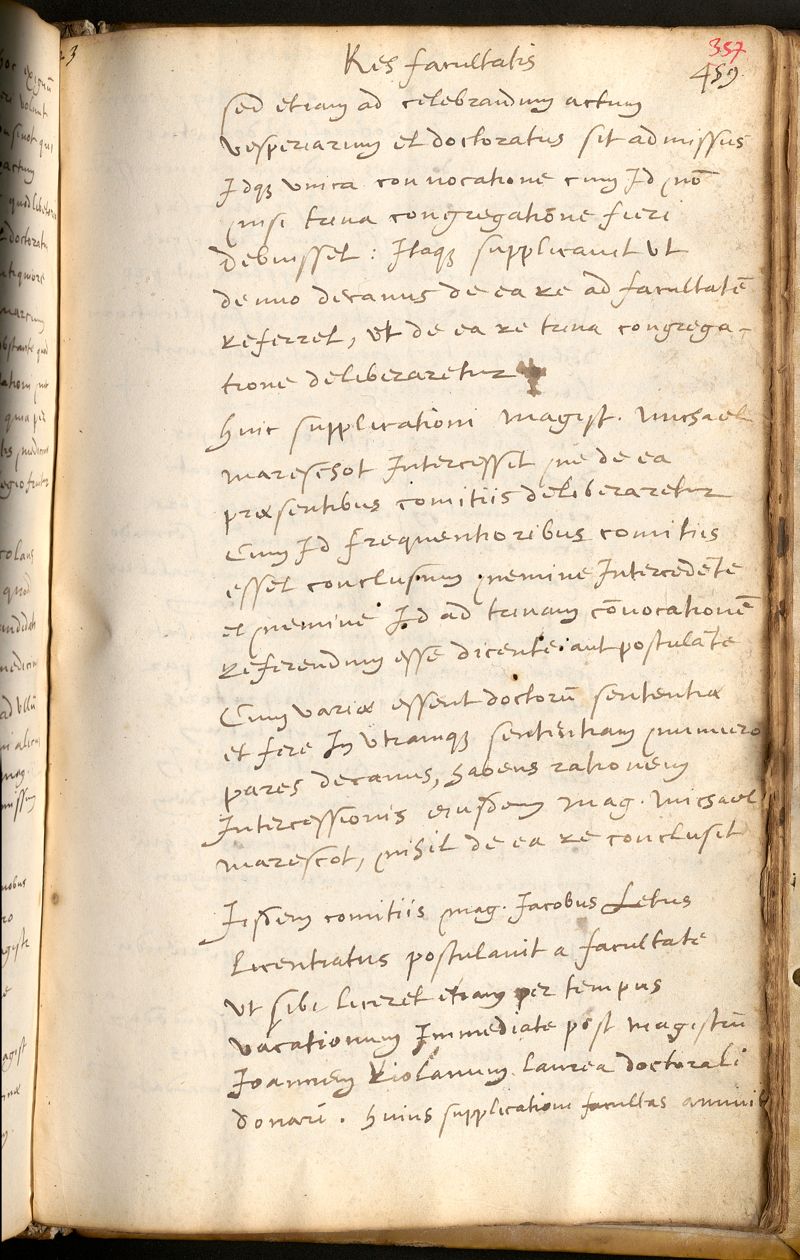 Res facultatis
357
459
sed etiam ad celebrandum actum
vesperiarum et doctoratus sit admissus
Idq; vnica conuocatione cum Id nō
nisi trina congregatione fieri
debuisset : Itaq; supplicauit vt
denuo decanus de ea re ad facultatē
referret, vt de ea re trina congrega-
tione deliberaretur
huic supplicationi magist. michael
mareschot Intercessit ne de ea
præsentibus comitiis deliberaretur
Cum Id frequentioribus comitiis
esset conclusum nemine Intercedēte
et nemine Id ad trinam cōuocationē
referendum esse dicente aut postulāte
Cum variæ essent doctorū sententiæ
et fere In vtramq; sententiam numero
pares decanus, habens rationem
Intercessionis eiusdem mag. michael
marescot, nihil de ea re conclusit
Iisdem comitiis mag. Jacobus Letus
Licentiatus postulauit a facultate
vt sibi liceret etiam per tempus
vacationum Immediate post magistrū
Joannem Riolanum laurea doctorali
donari . huius supplicationi facultas annuit